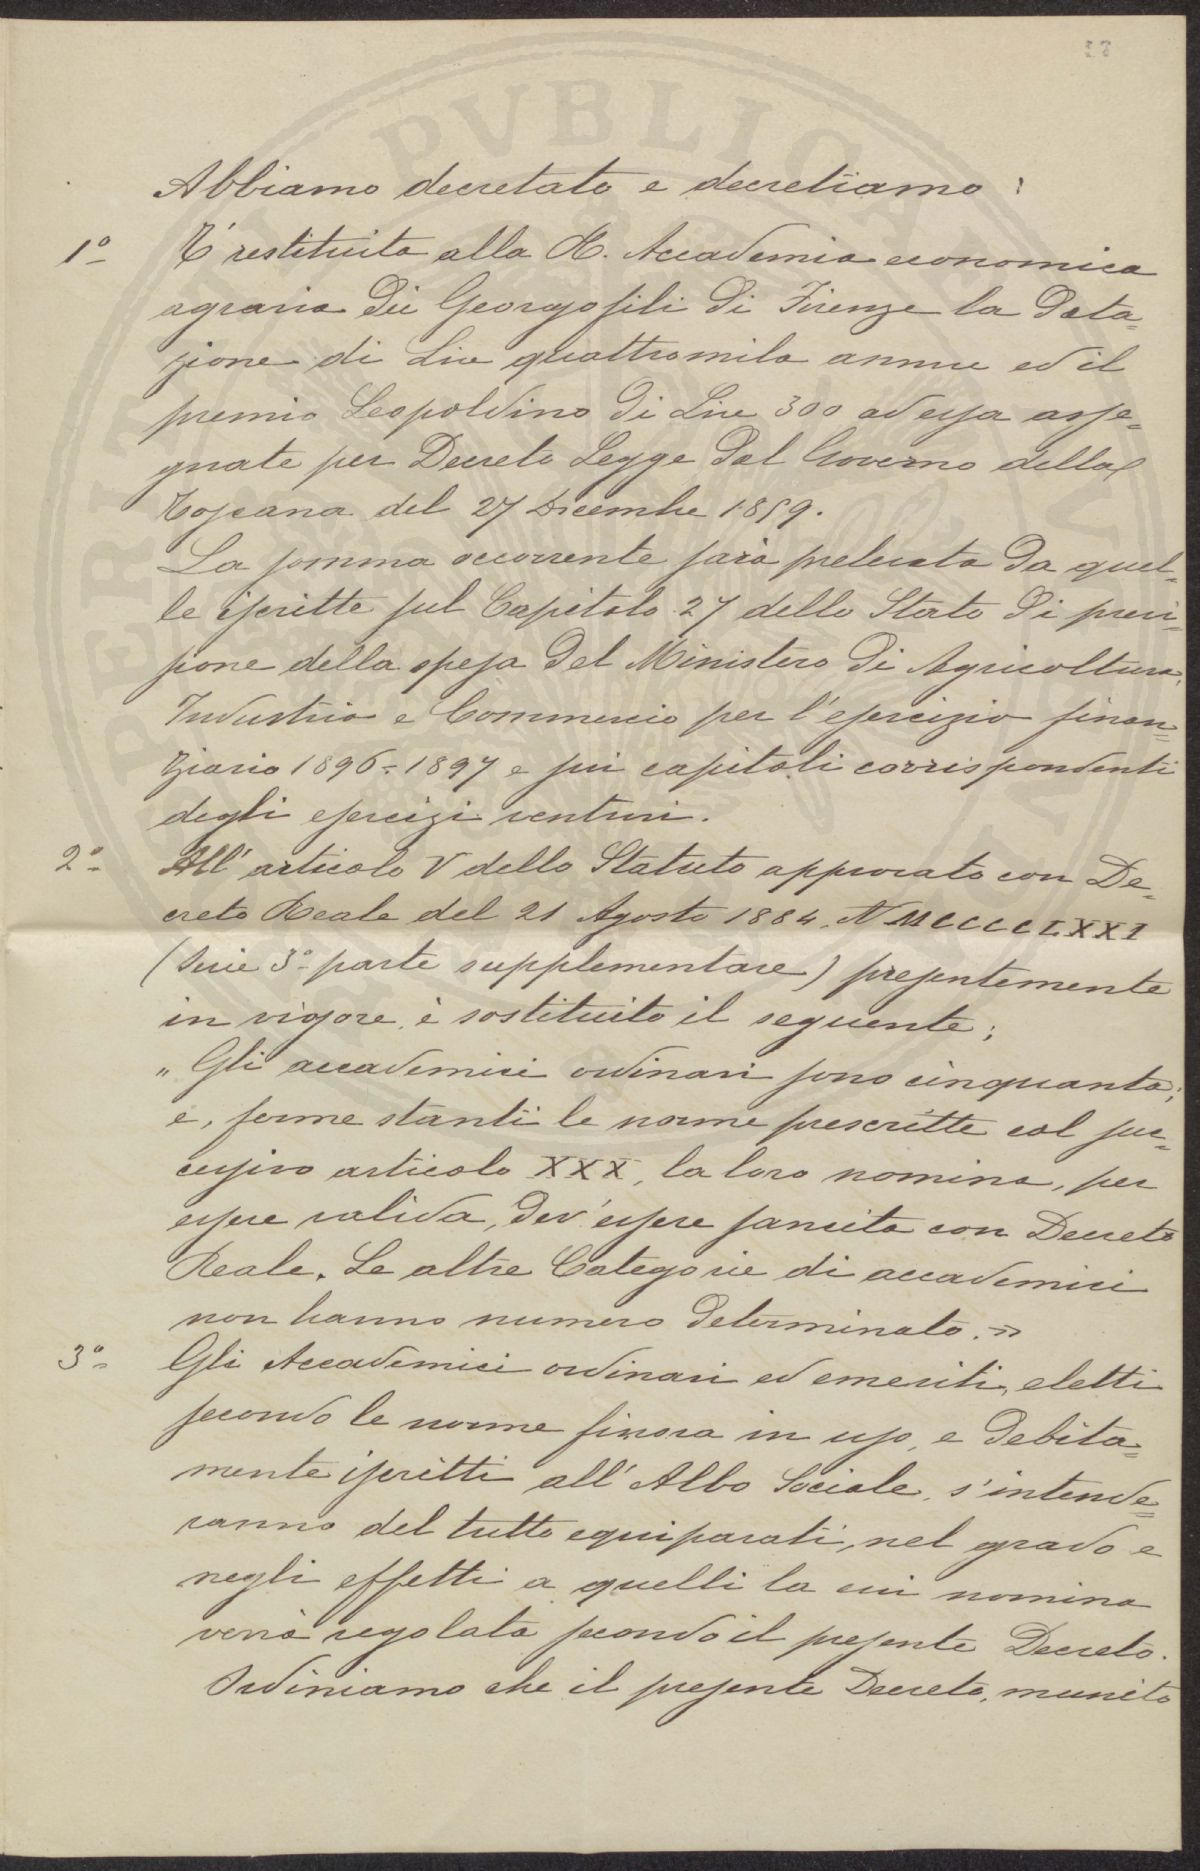 Abbiamo decretato e decretiamo:
1º È restituita alla R. Accademia economica
agraria dei Georgofili di Firenze la dota=
zione di Lire quattromila annue ed il
premio Leopoldino di Lire 300 ad essa asse=
gnate per Decreto Legge dal Governo della
Toscana del 27 Dicembre 1859.
La somma occorrente sarà prelevata da quel=
le iscritte sul Capitolo 27 dello Stato di previ=
sione della spesa del Ministero di Agricoltura,
Industria e Commercio per l'esercizio finan=
ziario 1896=1897 e sui capitoli corrispondenti
degli esercizi venturi.
2º All'articolo V dello Statuto approvato con De=
creto Reale del 21 Agosto 1884. N MCCCCLXXI
(Serie 3ª parte supplementare) presentemente
in vigore, è sostituito il seguente;
„Gli accademici ordinari sono cinquanta;
e, ferme stanti le norme prescritte col suc=
cessivo articolo XXX, la loro nomina, per
essere valida, dev'essere sancita con Decreto
Reale. Le altre Categorie di accademici
non hanno numero determinato.»
3º Gli Accademici ordinari ed emeriti, eletti
secondo le norme finora in uso, e debita=
mente iscritti all'Albo Sociale, s'intende=
ranno del tutto equiparati, nel grado e
negli effetti a quelli la cui nomina
verrà regolata secondo il presente Decreto.
Ordiniamo che il presente Decreto, munito